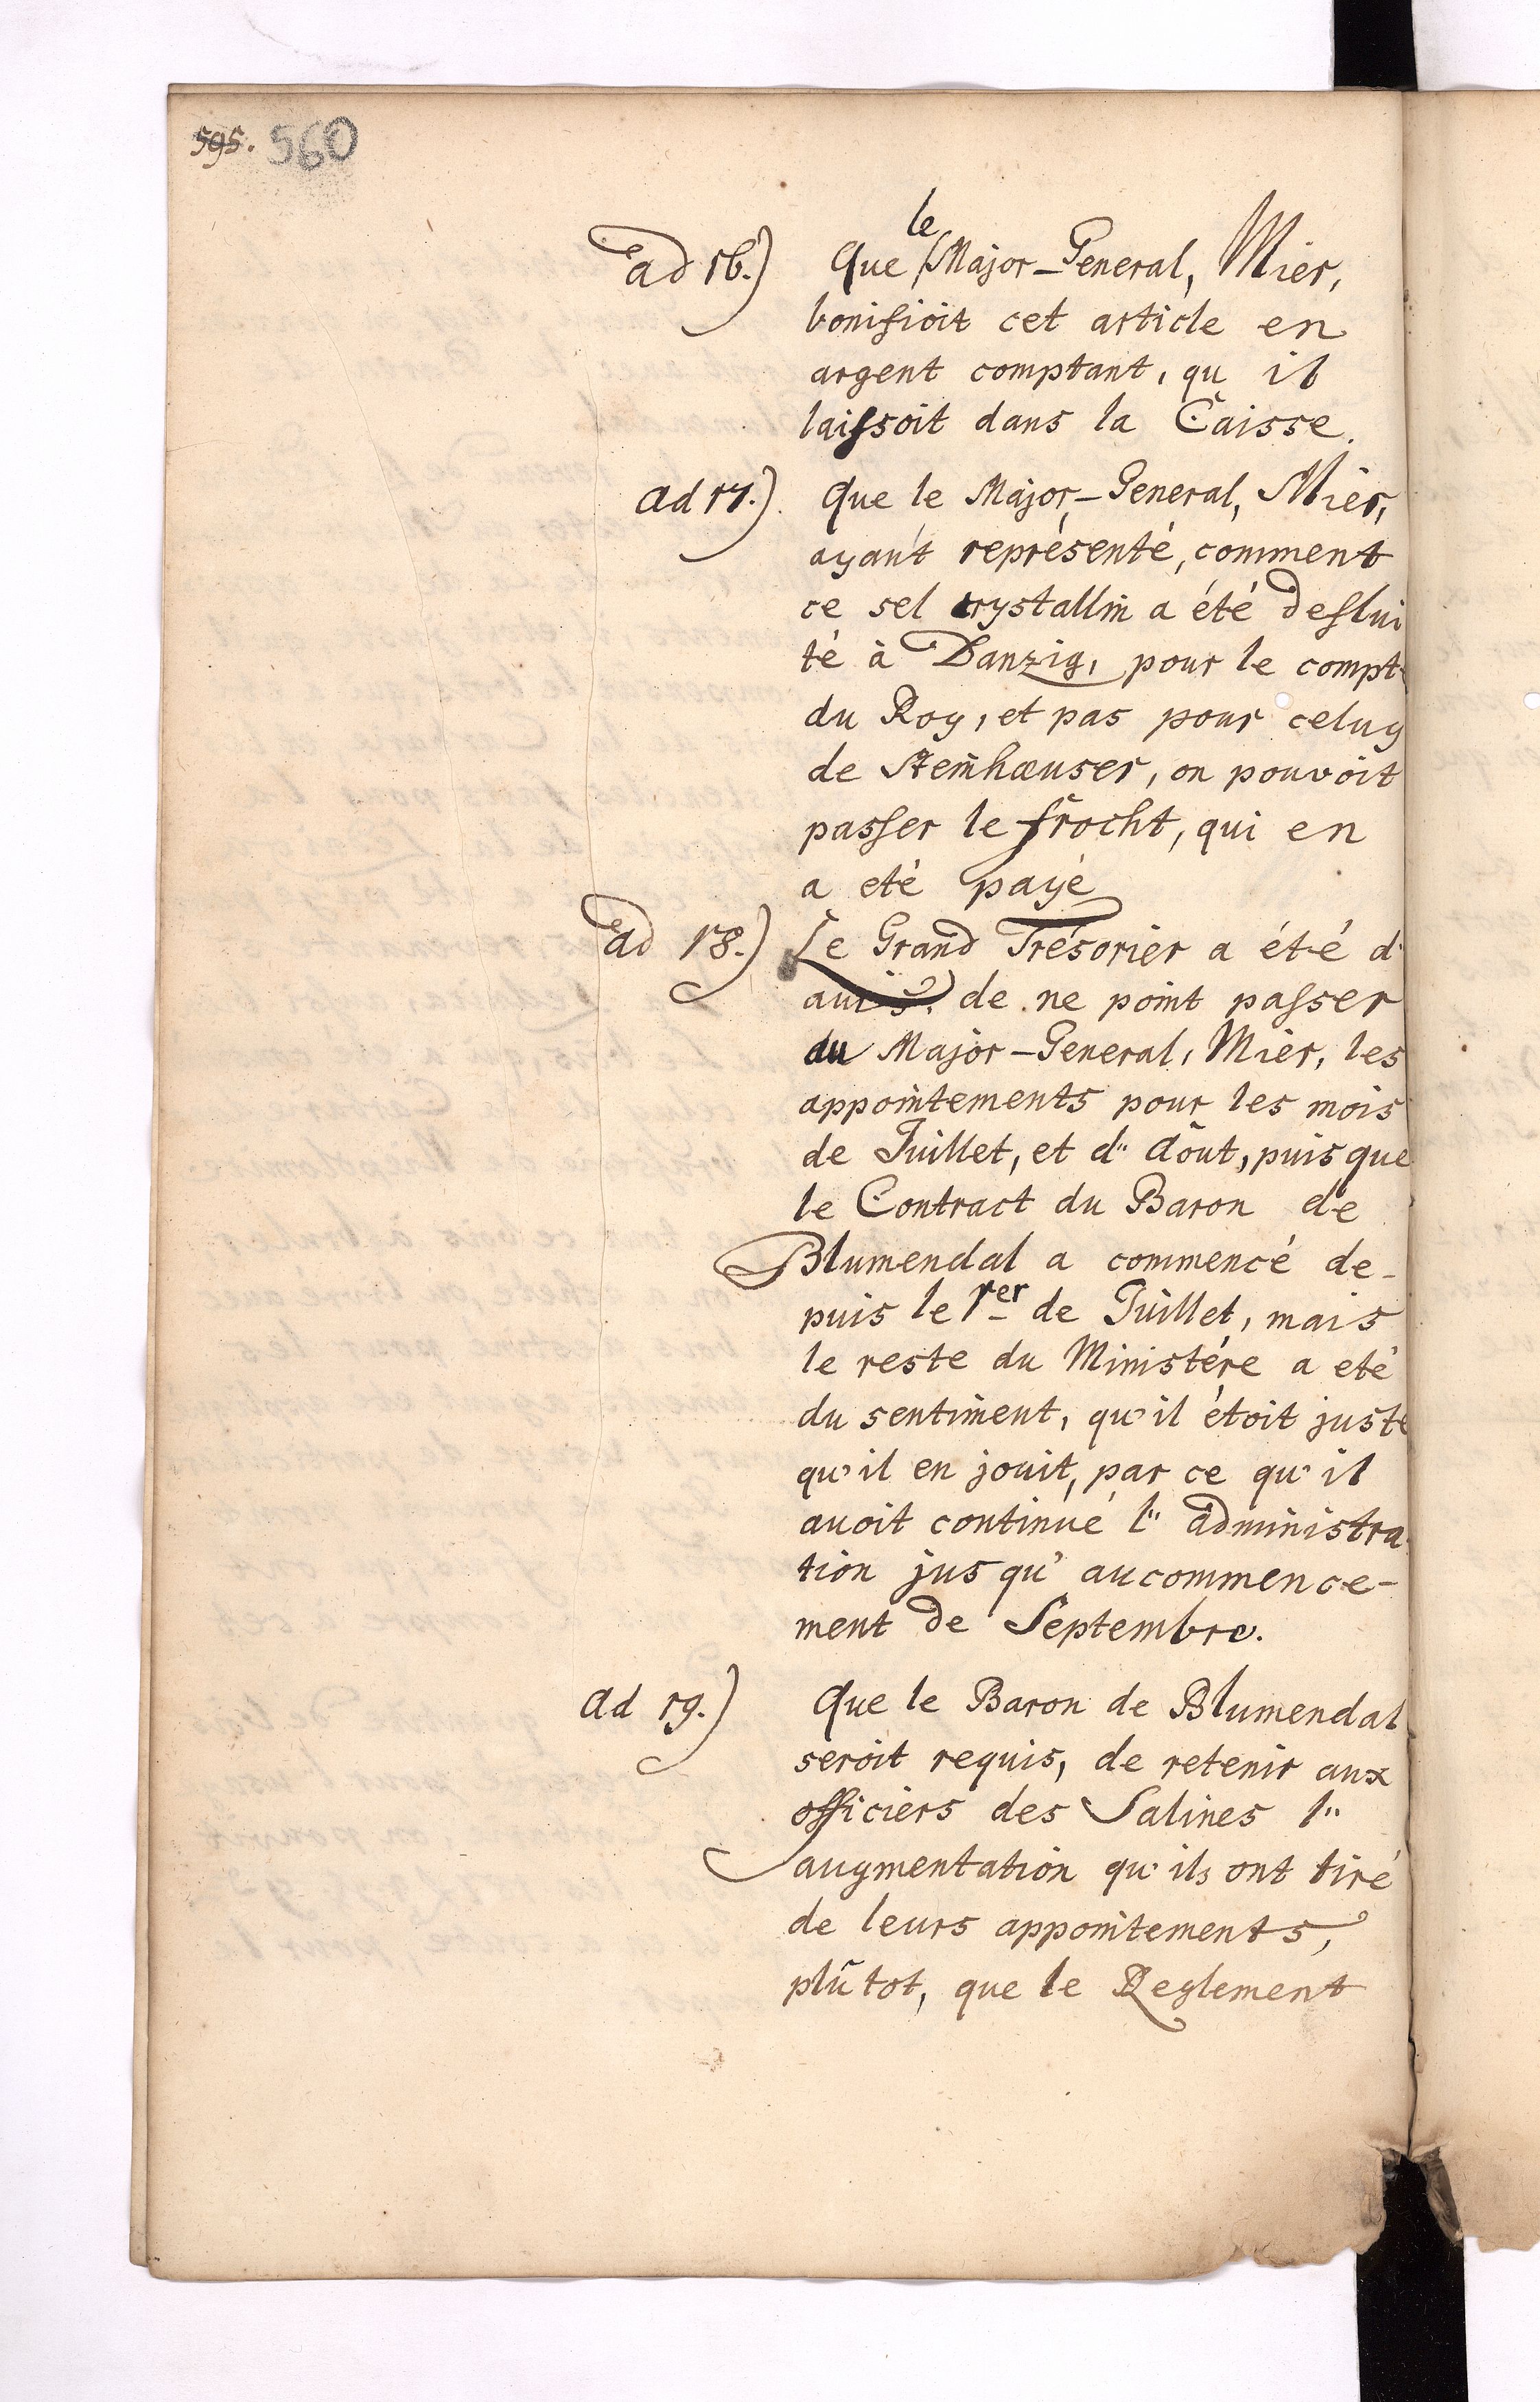 595. 560
le
ad 16.) Que Major-General, Mier,
bonifioit cet article en
argent comptant, qu il
laissoit dans la Caisse.
ad 17.) Que le Major-General, Mier,
ayant représenté, comment
ce sel crystallin a été deslui
té à Danzig, pour le compt
du Roy, et pas pour celuy
de Steinhæuser, on pouvoit
passer le frocht, qui en
a eté payé
ad 18.) Le Grand Trésorier a été d'
avis, de ne point passer
du Major-General, Mier, les
appointements pour les mois
de Juillet, et d" Aôut, puis que
le Contract du Baron de
Blumendal a commencé de-
puis le 1er de Juillet, mais
le reste du Ministére a eté
du sentiment, qu'il étoit juste
qu'il en jouit, par ce qu'il
avoit continué l" administra
tion jus qu' aucommence-
ment de Septembre.
ad 19.) Que le Baron de Blumendal
seroit requis, de retenir aux
officiers des Salines l"
augmentation qu'ils ont tiré
de leurs appointements,
plûtot, que le Reglement